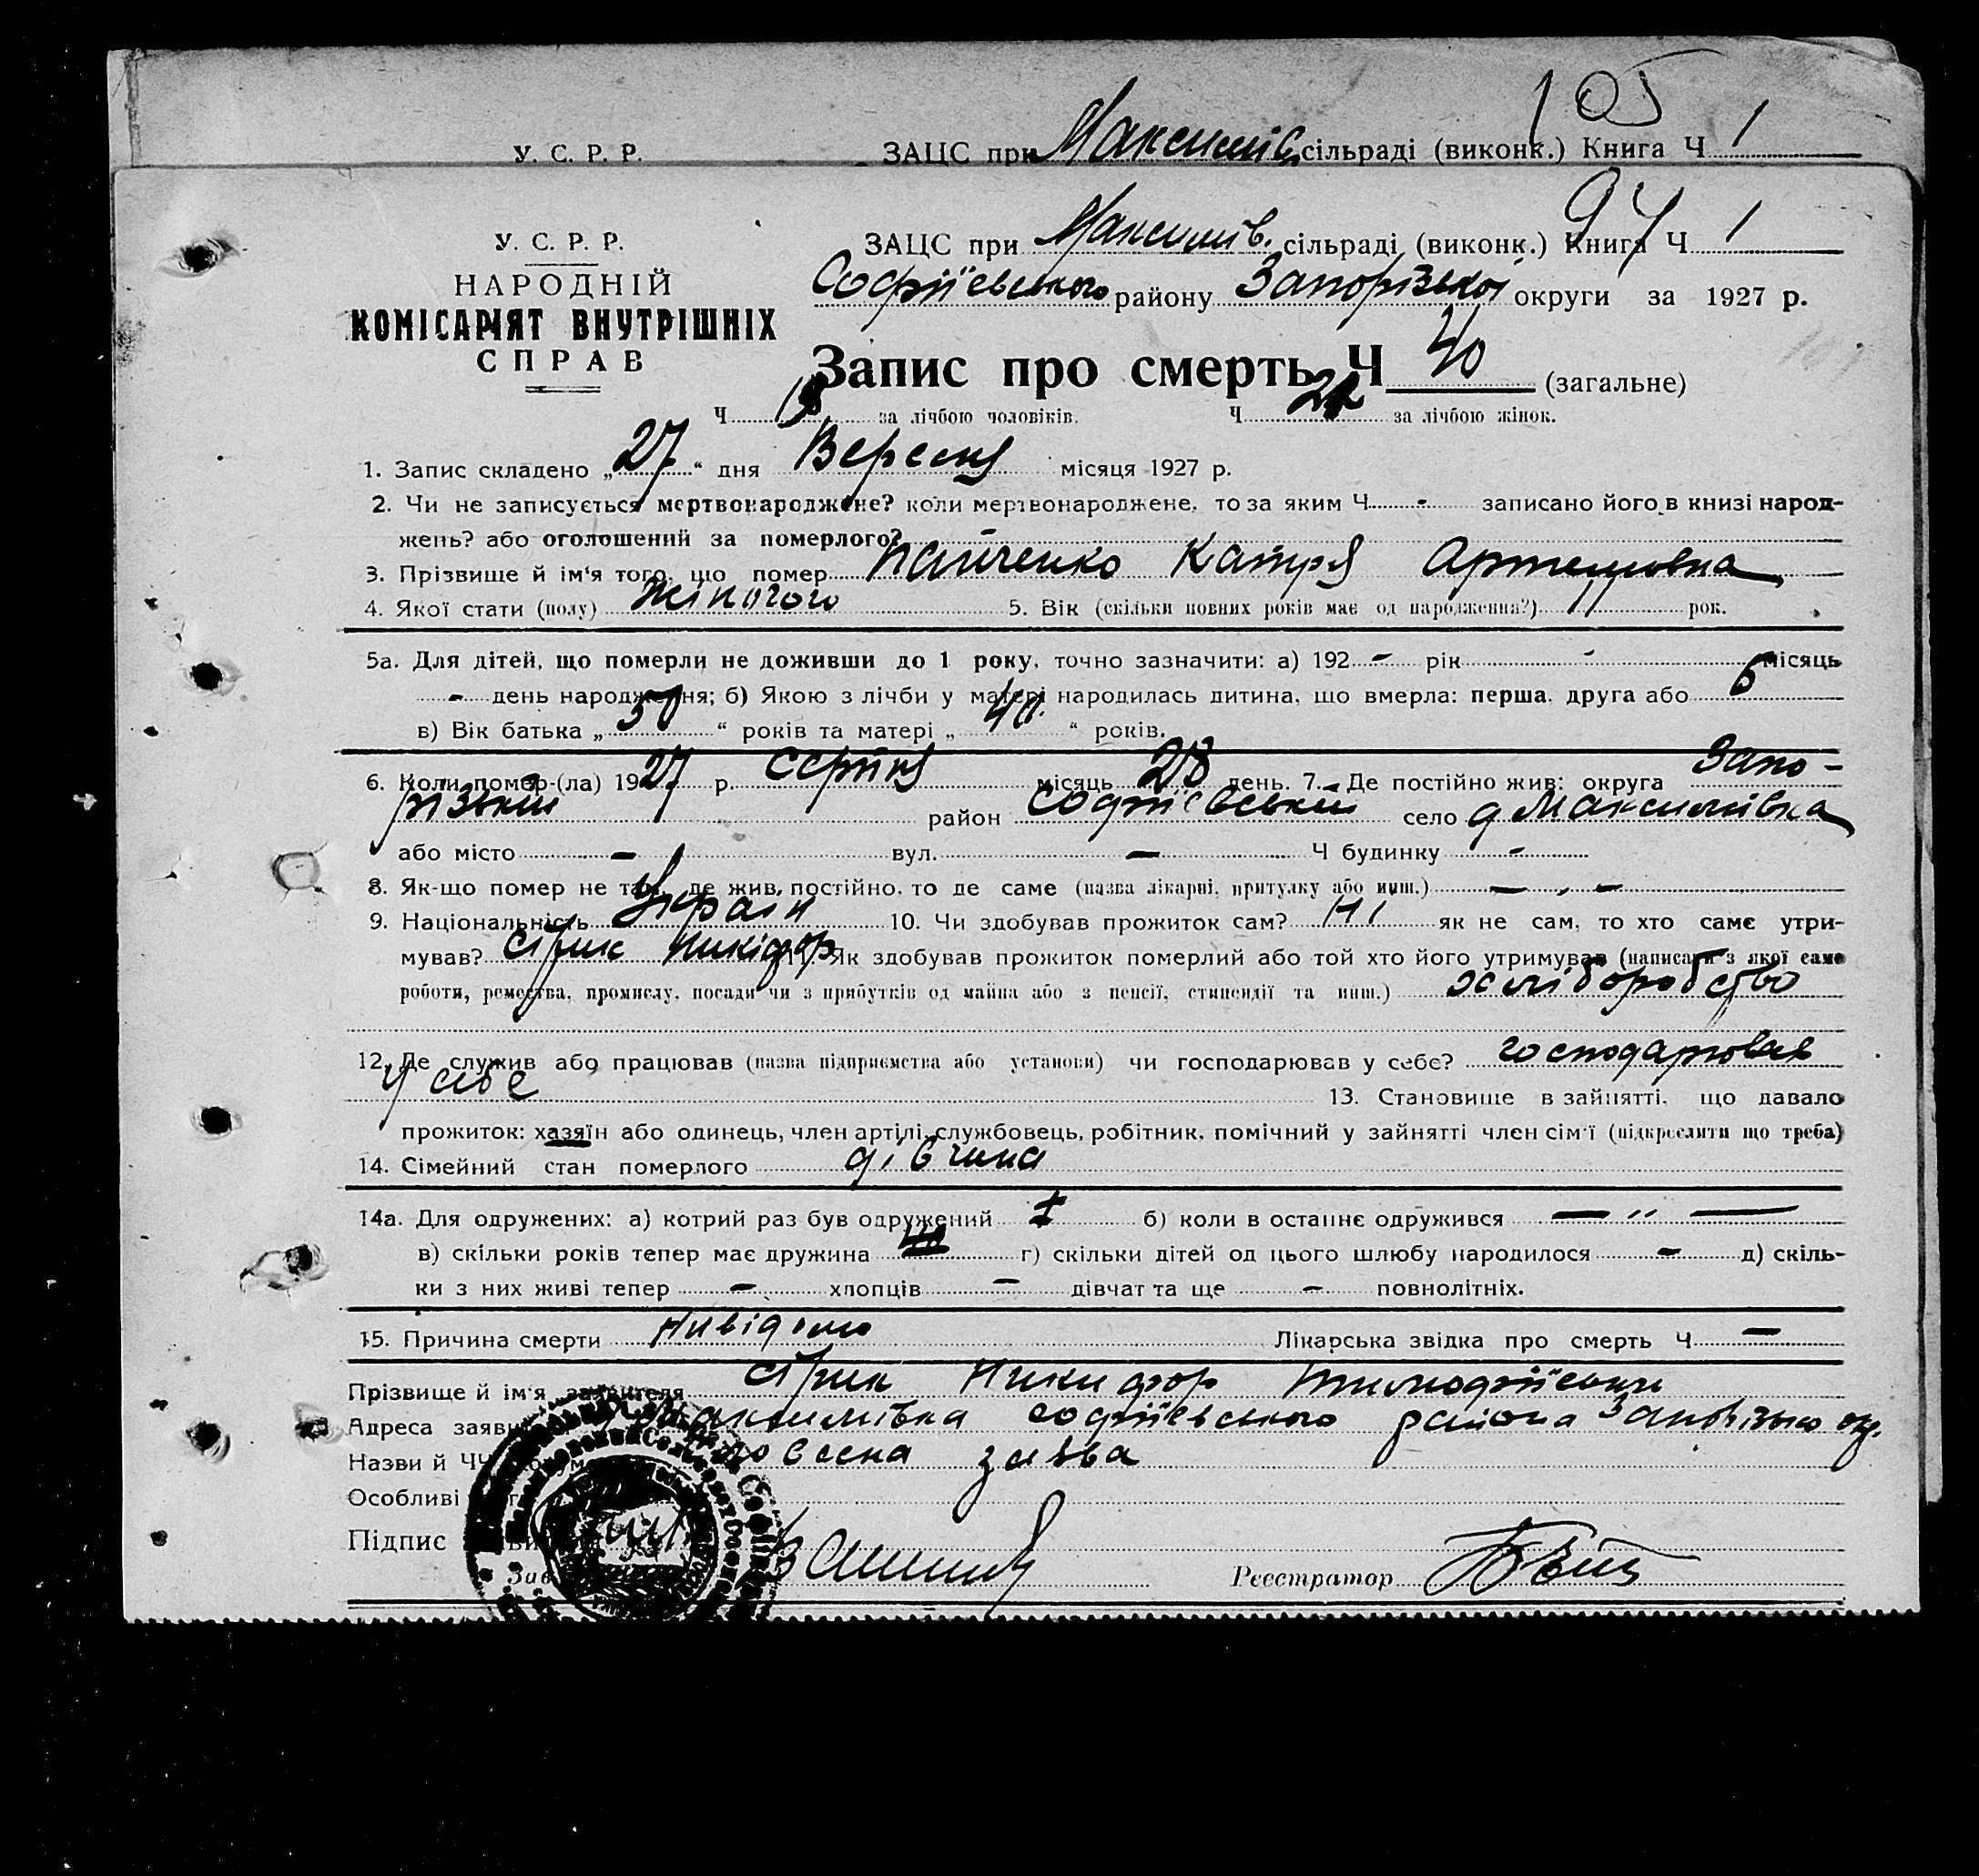 105
У. С. Р. Р. ЗАЦС при Максимів сільраді (виконк.) Книга Ч 1
94
У. С. Р. Р. ЗАЦС при Максимів. сільраді (виконк.) Книга Ч 1
НАРОДНІЙ Софіївського району Запорізької округи за 1927 р.
КОМІСАРІЯТ ВНУТРІШНІХ
СПРАВ Запис про смерть Ч 40 (загальне)
Ч 18 за лічбою чоловіків. Ч 22 за лічбою жінок.
1. Запис складено „27“ дня Вересня місяця 1927 р.
2. Чи не записується мертвонароджене? коли мертвонароджене, то за яким Ч - записано його в книзі народ-
жень? або оголошений за померлого?
3. Прізвище й ім'я того, що помер Панченко Катря Артемовна
4. Якої стати (полу) жіночого 5. Вік (скільки повних років має од народження?) 11 рок.
5а. Для дітей, що померли не доживши до 1 року, точно зазначити: а) 192 - рік - місяць
- день народження; б) Якою з лічби у матері народилась дитина, що вмерла: перша, друга або 6
в) Вік батька „50“ років та матері „40“ років.
6. Коли помер-(ла) 1927 р. серпня місяць 28 день. 7. Де постійно жив: округа Запо-
різький район Софіївський село д Максимівка
або місто - вул. - Ч будинку -
8. Як-що помер не там, де жив, постійно, то де саме (назва лікарні, притулку або инш.) - , -
9. Національність Україн 10. Чи здобував прожиток сам? Ні як не сам, то хто саме утри-
мував? Стрик Никіфор 11. Як здобував прожиток померлий або той хто його утримував (написати з якої саме
роботи, ремества, промислу, посади чи з прибутків од майна або з пенсії, стипендії та инш.) хліборобство
12. Де служив або працював (назва підприємства або установи) чи господарював у себе? господарював
у себе 13. Становище в зайнятті, що давало
прожиток: хазяїн або одинець, член артілі, службовець, робітник, помічний у зайнятті член сім'ї (підкреслити що треба)
14. Сімейний стан померлого дівчина
14а. Для одружених: а) котрий раз був одружений б) коли в останнє одружився — „ —
в) скільки років тепер має дружина г) скільки дітей од цього шлюбу народилося - д) скіль-
ки з них живі тепер - хлопців - дівчат та ще - повнолітніх.
15. Причина смерти Нивідомо Лікарська звідка про смерть Ч —
Прізвище й ім'я заявителя Стрик Никифор Тимофіївич
Адреса заяви Максимівка Софіївського района Запорізько окр.
Назви й ЧЧ словесна заява
Особливі
Підпис
Зав Реєстратор